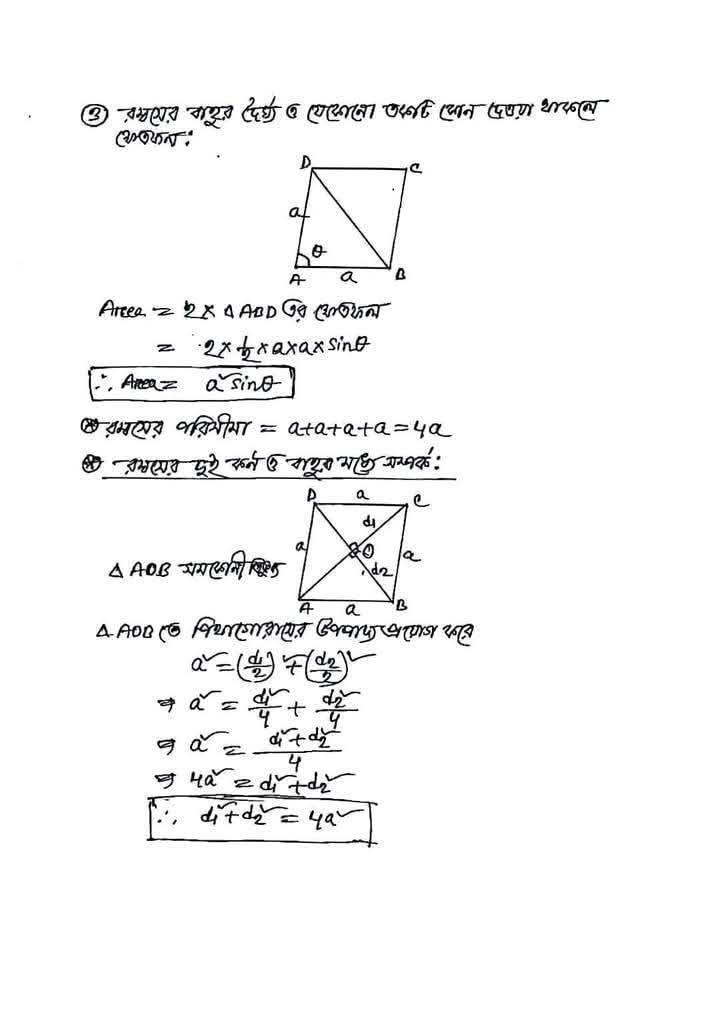 ③ রম্বসের বাহুর দৈর্ঘ্য ও যেকোনো একটি কোন দেওয়া থাকলে
ক্ষেত্রফল:
D C
a
θ
A a B
Area = 2 × Δ ABD এর ক্ষেত্রফল
= 2 × ½ × a × a × sinθ
∴ Area = a² sinθ
⊛ রম্বসের পরিসীমা = a+a+a+a = 4a
⊛ রম্বসের দুই কর্ন ও বাহুর মধ্যে সম্পর্ক:
D a C
d₁
a O a
d₂
Δ AOB সমকোনী ত্রিভুজ
A a B
Δ AOB তে পিথাগোরাসের উপপাদ্য প্রয়োগ করে
a² = (d₁/2)² + (d₂/2)²
⇒ a² = d₁²/4 + d₂²/4
⇒ a² = (d₁²+d₂²)/4
⇒ 4a² = d₁²+d₂²
∴ d₁²+d₂² = 4a²